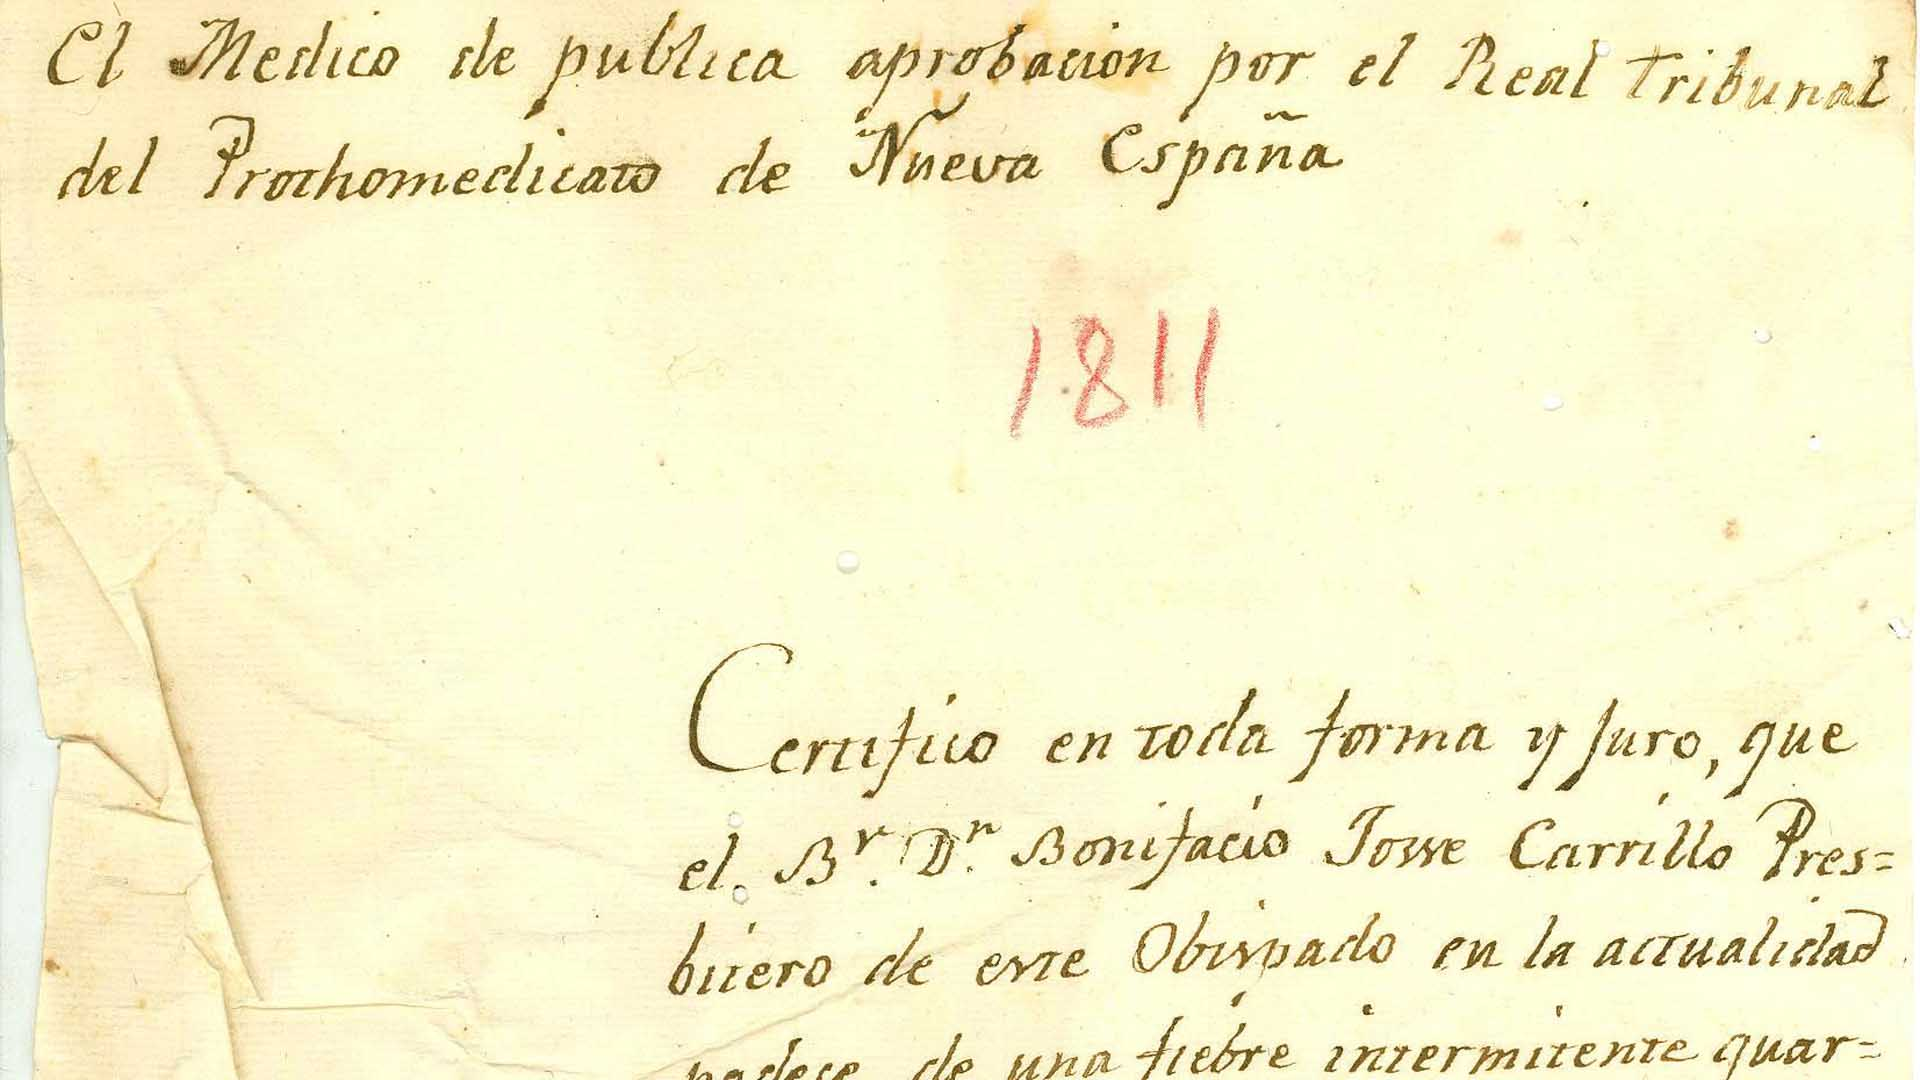 El Medico de publica aprobacion por el Real Tribunal
del Prothomedicato de Nueva España
1811
Certifico en toda forma y Juro, que
el Br. Dn. Bonifacio Josse Carrillo Pres=
bitero de este Obispado en la actualidad
padece de una fiebre intermitente quar=